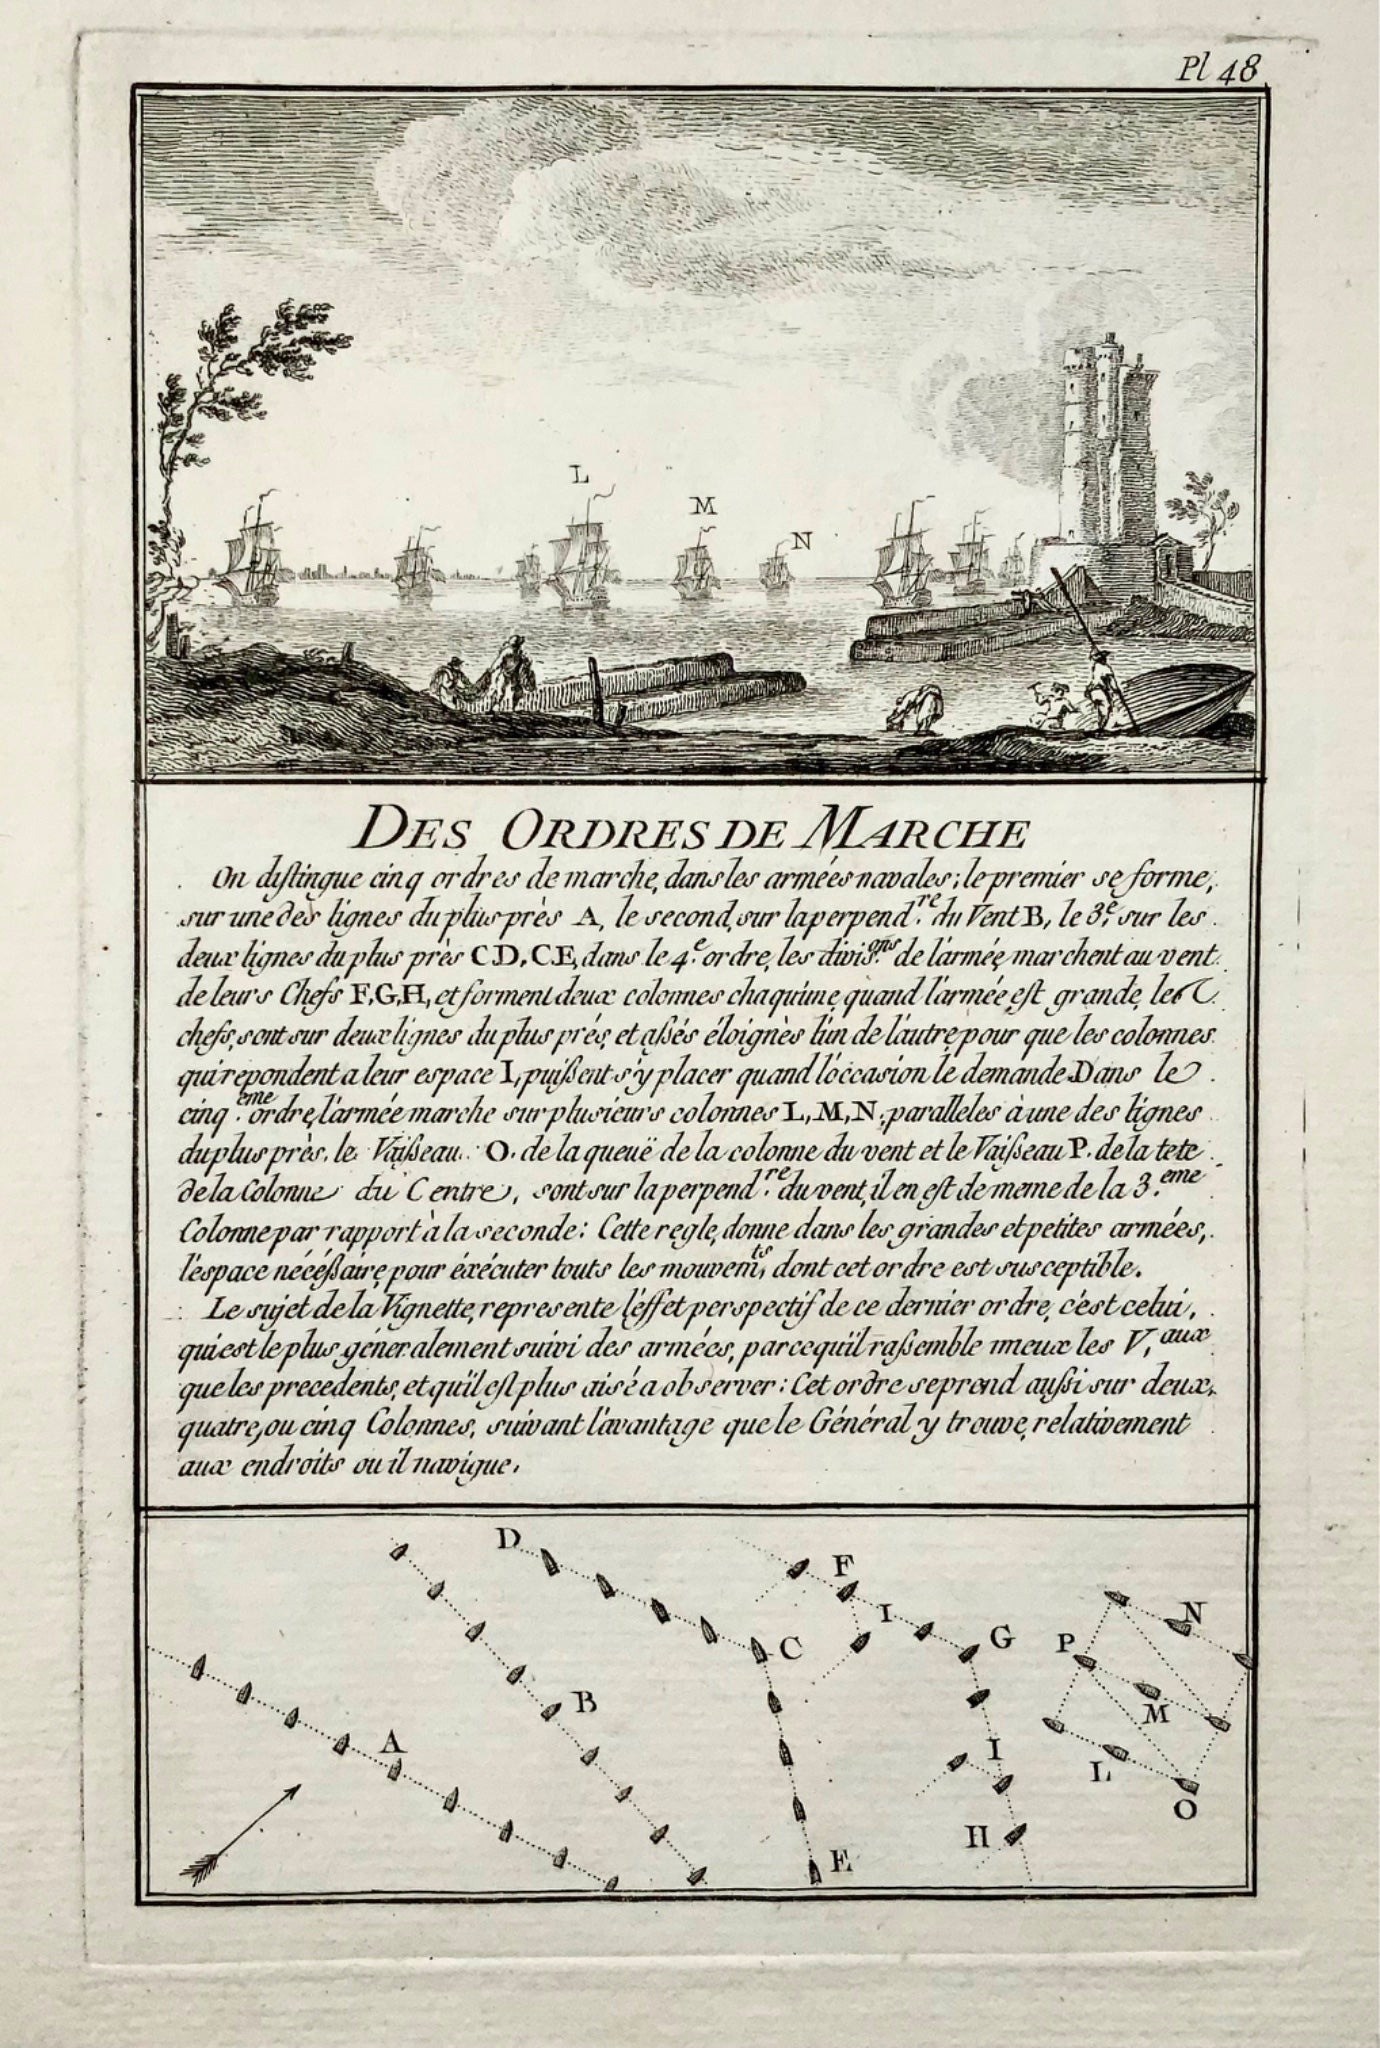 Pl 48
L
M
N
DES ORDRES DE MARCHE
On distingue cinq ordres de marche, dans les armées navales; le premier se forme,
sur une des lignes du plus près A, le second, sur la perpend.re du Vent B, le 3.e sur les
deux lignes du plus près C.D, C.E, dans le 4.e ordre, les divis.ons de l'armée, marchent au vent
de leurs Chefs F, G, H, et forment deux colonnes chaqu'une, quand l'armée est grande, les
chefs, sont sur deux lignes du plus prés, et assés éloignès l'un de l'autre, pour que les colonnes
qui repondent a leur espace I, puissent s'y placer quand l'occasion le demande. Dans le
cinq.eme ordre, l'armée marche sur plusieurs colonnes L, M, N, paralleles à une des lignes
du plus près, le Vaisseau O. de la queuë de la colonne du vent et le Vaisseau P. de la tete
de la Colonne du Centre, sont sur la perpend.re du vent, il en est de meme de la 3.eme
Colonne par rapport à la seconde: Cette regle, donne dans les grandes et petites armées,
l'espace nécéssaire, pour éxécuter touts les mouvem.ts dont cet ordre est susceptible.
Le sujet de la Vignette, represente l'éffet perspectif de ce dernier ordre, c'est celui,
qui est le plus géneralement suivi des armées, parcequ'il rassemble mieux les V.aux
que les precedents, et qu'il est plus aisé a observer: Cet ordre se prend aussi sur deux,
quatre, ou cinq Colonnes, suivant l'avantage que le Général y trouve, relativement
aux endroits ou il navigue.
D
F
I
N
C
G
P
B
M
A
I
L
O
H
E